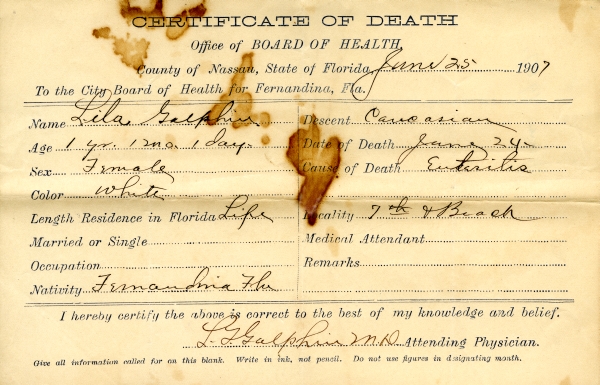 CERTIFICATE OF DEATH
Office of BOARD OF HEALTH,
County of Nassau, State of Florida, June 25 1907
To the City Board of Health for Fernandina, Fla.
Name Lila Galphin Descent Caucasian
Age 1 yr. 1 mo. 1 day. Date of Death June 24
Sex Female Cause of Death Enteritis
Color White
Length Residence in Florida Life Locality 7th & Beach
Married or Single Medical Attendant
Occupation Remarks
Nativity Fernandina Fla
I hereby certify the above is correct to the best of my knowledge and belief.
L. G. Galphin M.D. Attending Physician.
Give all information called for on this blank. Write in ink, not pencil. Do not use figures in designating month.